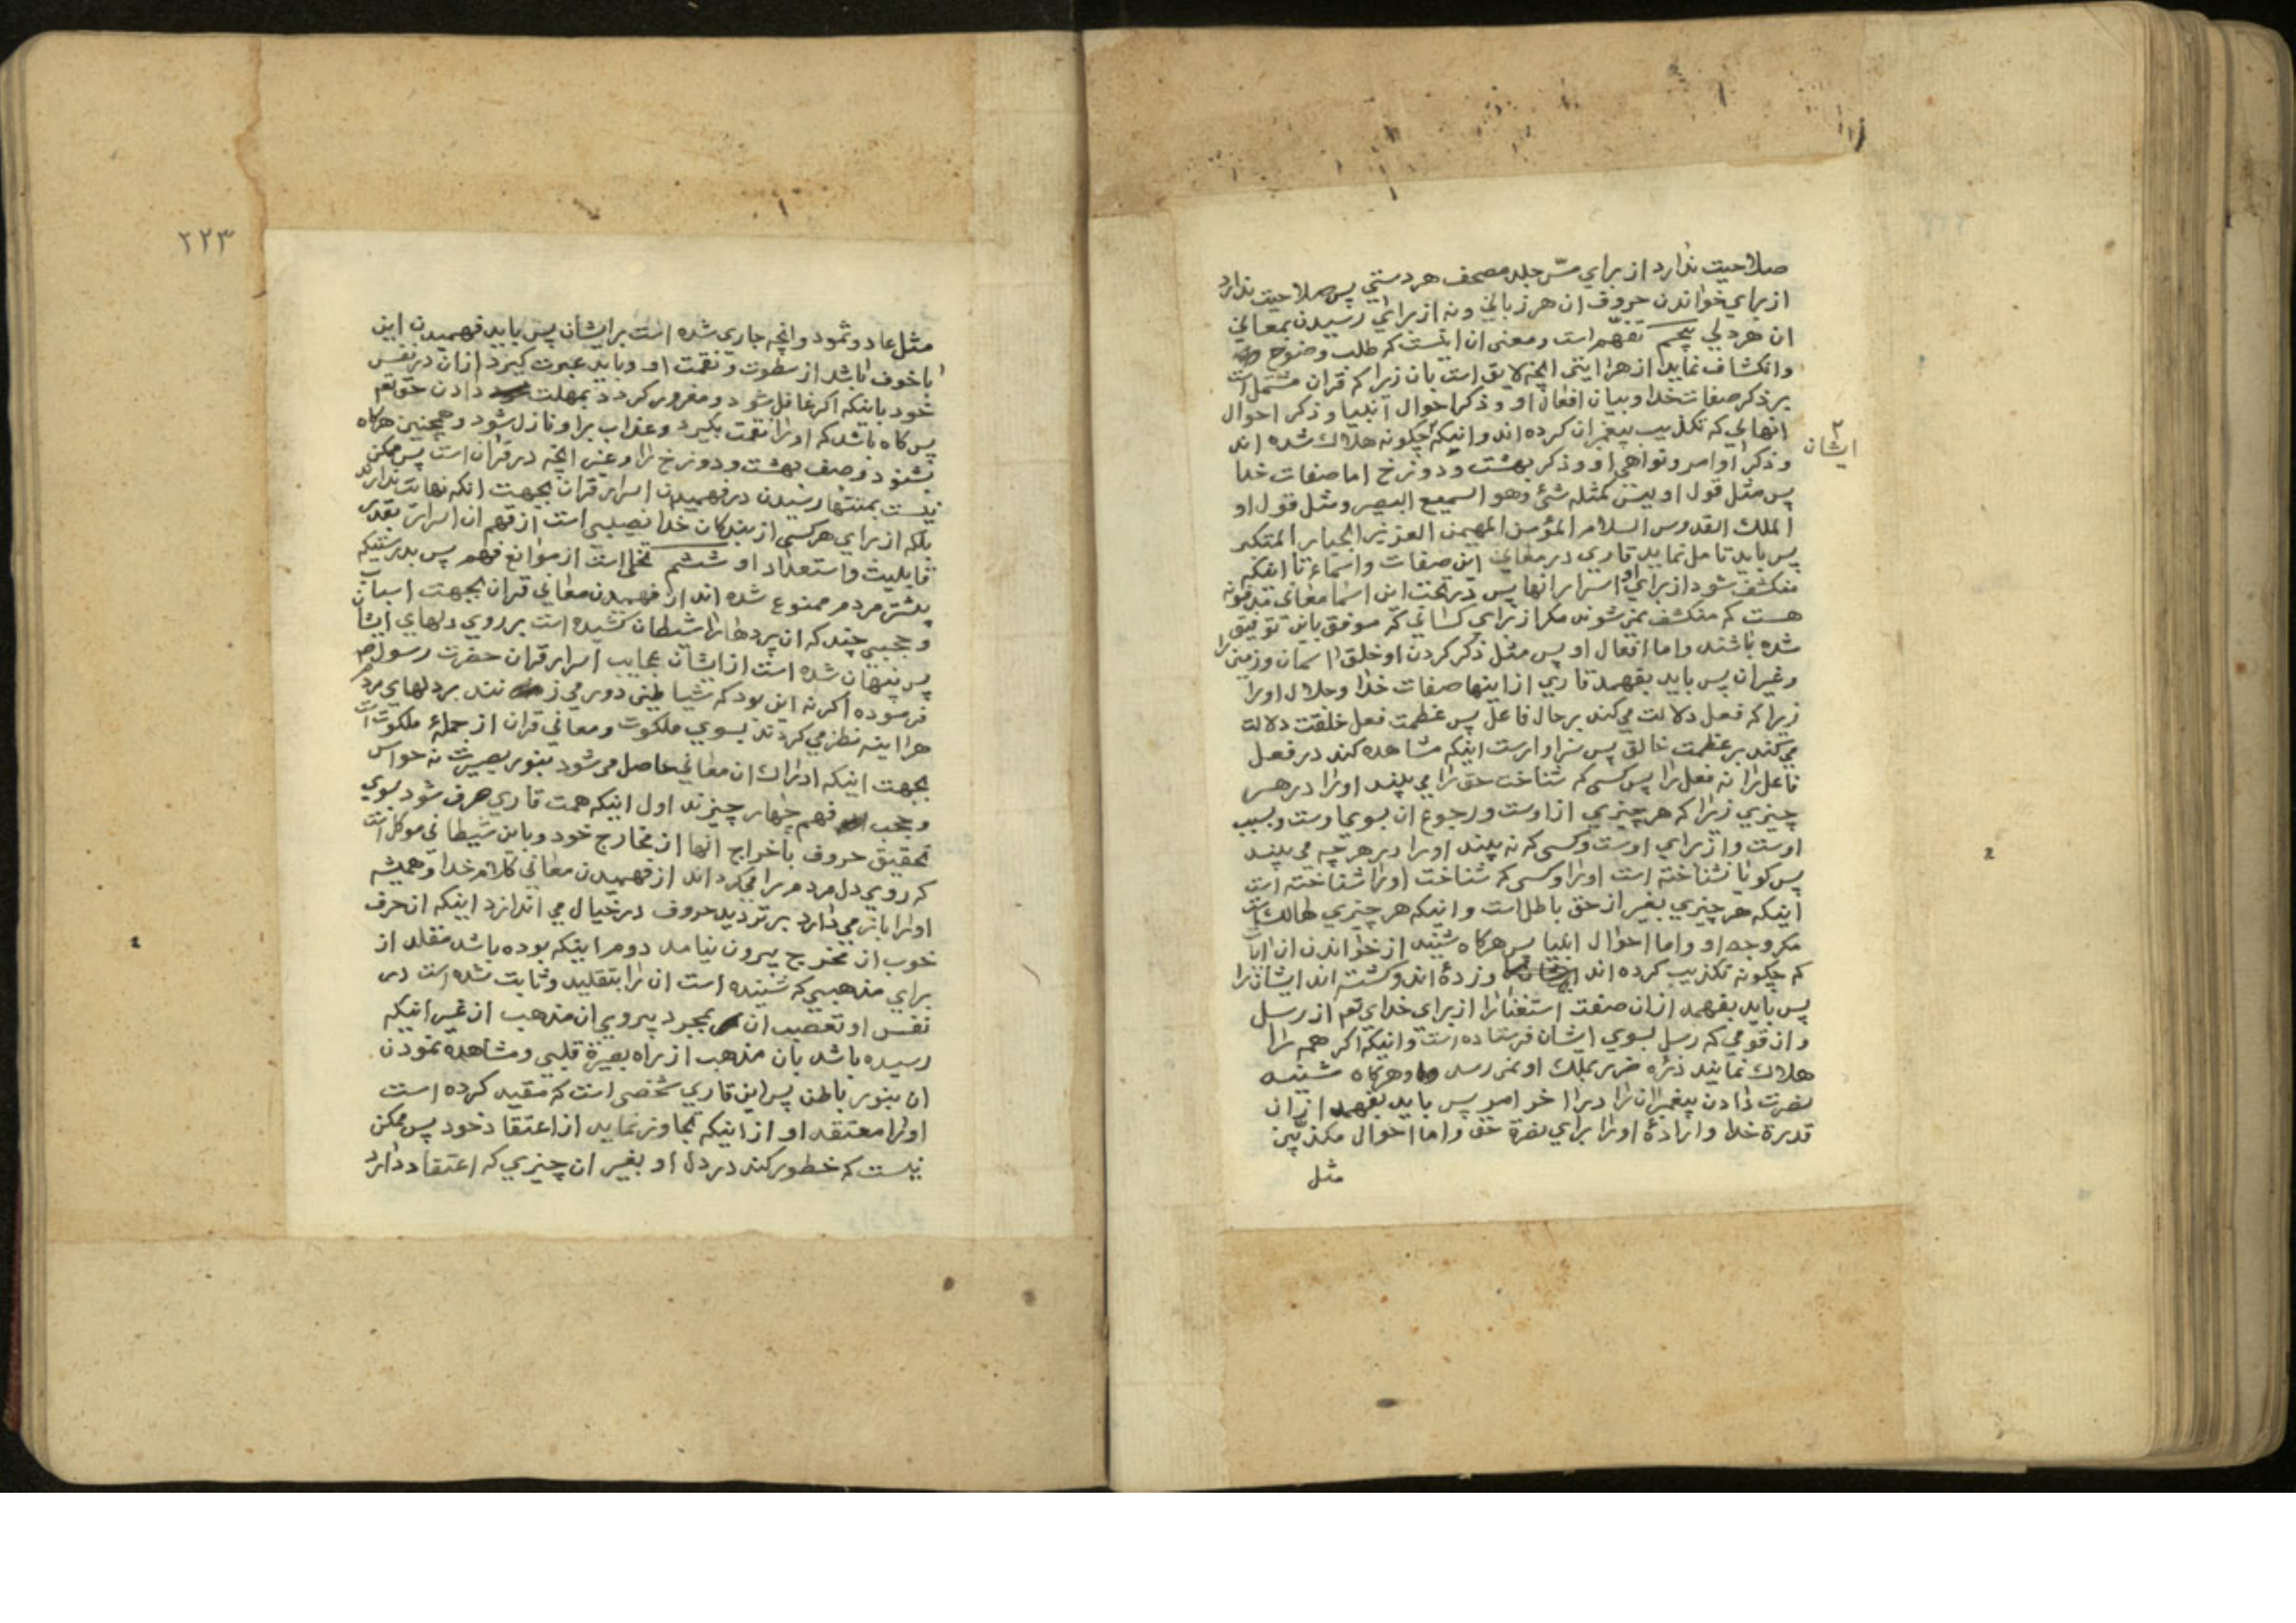 صلاحیت ندارد از برای مسّ جلد مصحف هر دستی پس صلاحیت ندارد
از برای خواندن حروف ان هر زبانی و نه از برای رسیدن بمعانی
ان هر دلی پنجم تفهّم است و معنی ان اینست که طلب وضوح
وانکشاف نماید از هر ایتی انچه لایق است بان زیرا که قران مشتمل است
بر ذکر صفات خدا و بیان افعال او و ذکر احوال انبیا و ذکر احوال
انهایی که تکذیب پیغمبران کرده اند و اینکه چگونه هلاک شده اند
ایشان
و ذکر اوامر و نواهی او و ذکر بهشت و دوزخ اما صفات خدا
پس مثل قول او لیس کمثله شئ و هو السمیع البصیر و مثل قول او
الملک القدوس السلام المؤمن المهیمن العزیز الجبار المتکبر
پس باید تامل نماید قاری در معانی این صفات و اسماء تا اینکه
منکشف شود از برای او اسرار انها پس در تحت این اسما معانی
هست که منکشف نمی شوند مکر از برای کسانی که موفق باین توفیق
شده باشند و اما افعال او پس مثل ذکر کردن او خلق اسمان و زمین را
و غیر ان پس باید بفهمد قاری از اینها صفات خدا و جلال او را
زیرا که فعل دلالت می کند بر حال فاعل پس عظمت فعل خلقت دلالت
می کند بر عظمت خالق پس سزاوارست اینکه مشاهده کند در فعل
فاعل را نه فعل را پس کسی که شناخت حق را می بیند او را در هر
چیزی زیرا که هر چیزی از اوست و رجوع ان بسوی اوست و بسبب
اوست و از برای اوست و کسی که نه بیند او را در هر چه می بیند
پس کویا نشناخته است او را و کسی که شناخت او را شناخته است
اینکه هر چیزی بغیر از حق باطل است و اینکه هر چیزی هالک است
مکر وجه او و اما احوال انبیا پس هرکاه شنید از خواندن ان ایات
که چکونه تکذیب کرده اند و زده اند و کشته اند ایشان را
پس باید بفهمد از ان صفت استغنا را از برای خدای تعم از رسل
و از قومی که رسل بسوی ایشان فرستاده است و اینکه اکر همه را
هلاک نمایند ذرّه ضرر بملک او نمی رسد و هرکاه شنید
نصرت دادن پیغمبران را در اخر امر پس باید بفهمد از ان
قدرة خدا و ارادهٔ او را برای نصرة حق و اما احوال مکذبین
مثل
۲۲۳
مثل عاد و ثمود و انچه جاری شده است بر ایشان پس باید فهمیدن این
با خوف باشد از سطوت و نقمت او و باید عبرت کیرد از ان در نفس
خود باینکه اکر غافل شود و مغرور کردد بمهلت دادن حق تعم
پس کاه باشد که او را نقمت بکیرد و عذاب بر او نازل شود و همچنین هرکاه
بشنود وصف بهشت و دوزخ را و غیر انچه در قران است پس ممکن
نیست بمنتها رسیدن در فهمیدن اسرار قران بجهت انکه نهایت ندارند
بلکه از برای هر کسی از بندکان خدا نصیبی است از فهم ان اسرار بقدر
قابلیت و استعداد او ششم تخلی است از موانع فهم پس بدرستیکه
بیشتر مردم ممنوع شده اند از فهمیدن معانی قران بجهت اسباب
و حجبی چند که ان پردها را شیطان کشیده است بر روی دلهای ایشان
پس پنهان شده است از ایشان عجایب اسرار قران حضرت رسول ص
فرموده اکر نه این بود که شیاطین دور می زنند بر دلهای مردم
هر اینه نظر می کردند بسوی ملکوت و معانی قران از جملهٔ ملکوت است
بجهت اینکه ادراک ان معانی حاصل می شود بنور بصیرت نه حواس
و حجب فهم چهار چیزند اول اینکه همت قاری صرف شود بسوی
تحقیق حروف باخراج انها از مخارج خود و باین شیطانی موکل است
که روی دل مردم را می کرداند از فهمیدن معانی کلام خدا و همیشه
او را باز می دارد بر تردید حروف در خیال می اندازد اینکه ان حرف
خوب از مخرج بیرون نیامد دوم اینکه بوده باشد مقلد از
برای مذهبی که شنیده است ان را بتقلید و ثابت شده است در
نفس او تعصب ان بمجرد پیروی ان مذهب از غیر اینکه
رسیده باشد بان مذهب از راه بصیرة قلبی و مشاهده نمودن
ان بنور باطن پس این قاری شخصی است که مقید کرده است
او را معتقد او از اینکه تجاوز نماید از اعتقاد خود پس ممکن
نیست که خطور کند در دل او بغیر ان چیزی که اعتقاد دارد